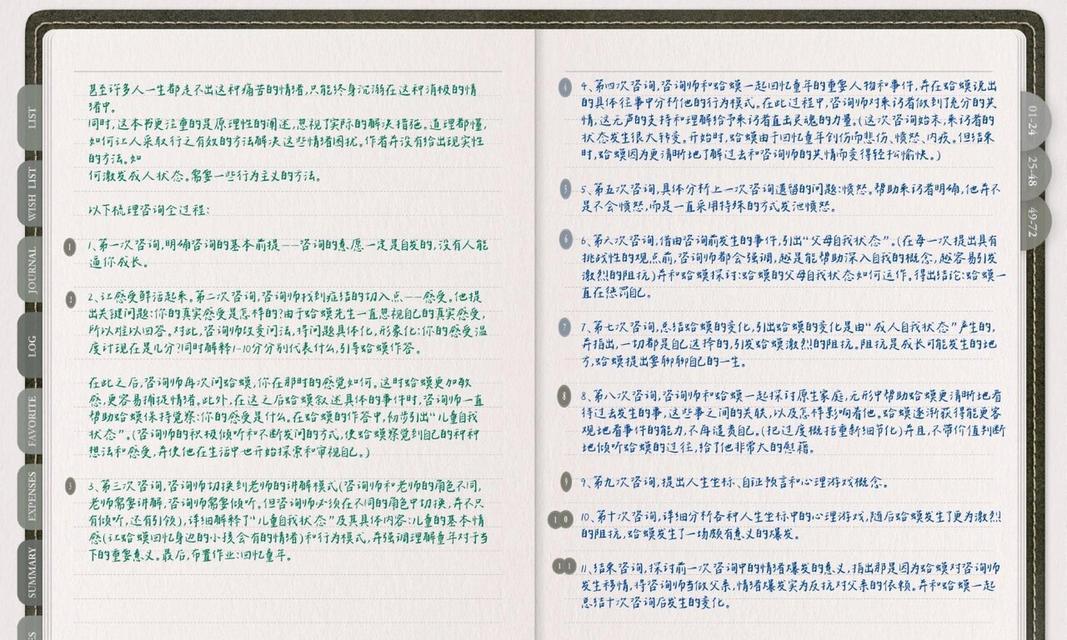 甚至许多人一生都走不出这种痛苦的情绪,只能终身沉溺在这种消极的情
绪中。
同时,这本书更注重的是原理性的阐述,忽视了实际的解决措施。道理都懂,
如何让人采取行之有效的方法解决这些情绪困扰。作者并没有给出现实性
的方法。如
何激发成人状态。需要一些行为主义的方法。
以下梳理咨询全过程:
1
1、第一次咨询,明确咨询的基本前提——咨询的意愿一定是自发的,没有人能
逼你成长。
2
2、让感受鲜活起来。第二次咨询,咨询师找到症结的切入点——感受。他提
出关键问题:你的真实感受是怎样的?由于蛤蟆先生一直忽视自己的真实感受,
所以难以回答。对此,咨询师改变问法,将问题具体化,形象化:你的感受温
度计现在是几分?同时解释1-10分分别代表什么,引导蛤蟆作答。
在此之后,咨询师再次问蛤蟆,你在那时的感觉如何。这时蛤蟆更加敏
感,更容易捕捉情绪。此外,在这之后蛤蟆叙述具体的事件时,咨询师一直
帮助蛤蟆保持觉察:你的感受是什么。在蛤蟆的作答中,初步引出“儿童自我
状态”。(咨询师的积极倾听和不断发问的方式,使蛤蟆察觉到自己的种种
想法和感受,并使他在生活中也开始探索和审视自己。)
3
3、第三次咨询,咨询师切换到老师的讲解模式(咨询师和老师的角色不同,
老师需要讲解,咨询师需要倾听。但咨询师必须在不同的角色中切换,并不只
有倾听,还有引领),详细解释了“儿童自我状态”及其具体内容:儿童的基本情
感(让蛤蟆回忆身边的小孩会有的情绪)和行为模式,并强调理解童年对于当
下的重要意义。最后,布置作业:回忆童年。
4
4、第四次咨询,咨询师和蛤蟆一起回忆童年的重要人物和事件,并在蛤蟆说出
的具体往事中分析他的行为模式。在此过程中,咨询师对来访者做到了充分的共
情,这无声的支持和理解给予来访者直击灵魂的力量。(这次咨询始末,来访者的
状态发生很大转变。开始时,蛤蟆由于回忆童年创伤而悲伤、愤怒、内疚。但结束
时,蛤蟆因为更清晰地了解过去和咨询师的共情而变得轻松愉快。)
5
5、第五次咨询,具体分析上一次咨询遗留的问题:愤怒。帮助来访者明确,他并不
是不会愤怒,而是一直采用特殊的方式发泄愤怒。
6
6、第六次咨询,借由咨询前发生的事件,引出“父母自我状态”。(在每一次提出具有
挑战性的观点前,咨询师都会强调,越是能帮助深入自我的概念,越容易引发
激烈的阻抗)并和蛤蟆探讨:蛤蟆的父母自我状态如何运作。得出结论:蛤蟆一
直在惩罚自己。
7
7、第七次咨询,总结蛤蟆的变化,引出蛤蟆的变化是由“成人自我状态”产生的,
并指出,一切都是自己选择的,引发蛤蟆激烈的阻抗。阻抗是成长可能发生的地
方,蛤蟆提出要聊聊自己的一生。
8
8、第八次咨询,咨询师和蛤蟆一起探讨原生家庭,无形中帮助蛤蟆更清晰地看
待过去发生的事,这些事之间的关联,以及怎样影响着他。蛤蟆逐渐获得能更客
观地看事件的能力,不再谴责自己。(把过度概括重新细节化)并且,不带价值判断
地倾听蛤蟆的过往,给了他非常大的慰藉。
9
9、第九次咨询,提出人生坐标、自证预言和心理游戏概念。
10
10、第十次咨询,详细分析各种人生坐标中的心理游戏,随后蛤蟆发生了更为激烈
的阻抗,蛤蟆发生了一场颇有意义的爆发。
11
11、结束咨询,探讨前一次咨询中的情绪爆发的意义,指出那是因为蛤蟆对咨询师
发生移情,将咨询师当做父亲,情绪爆发实为反抗对父亲的依赖。并和蛤蟆一起
总结十次咨询后发生的变化。
LIST
WISH LIST
JOURNAL
LOG
FAVORITE
EXPENSES
SUMMARY
ES
01-24
25-48
49-72